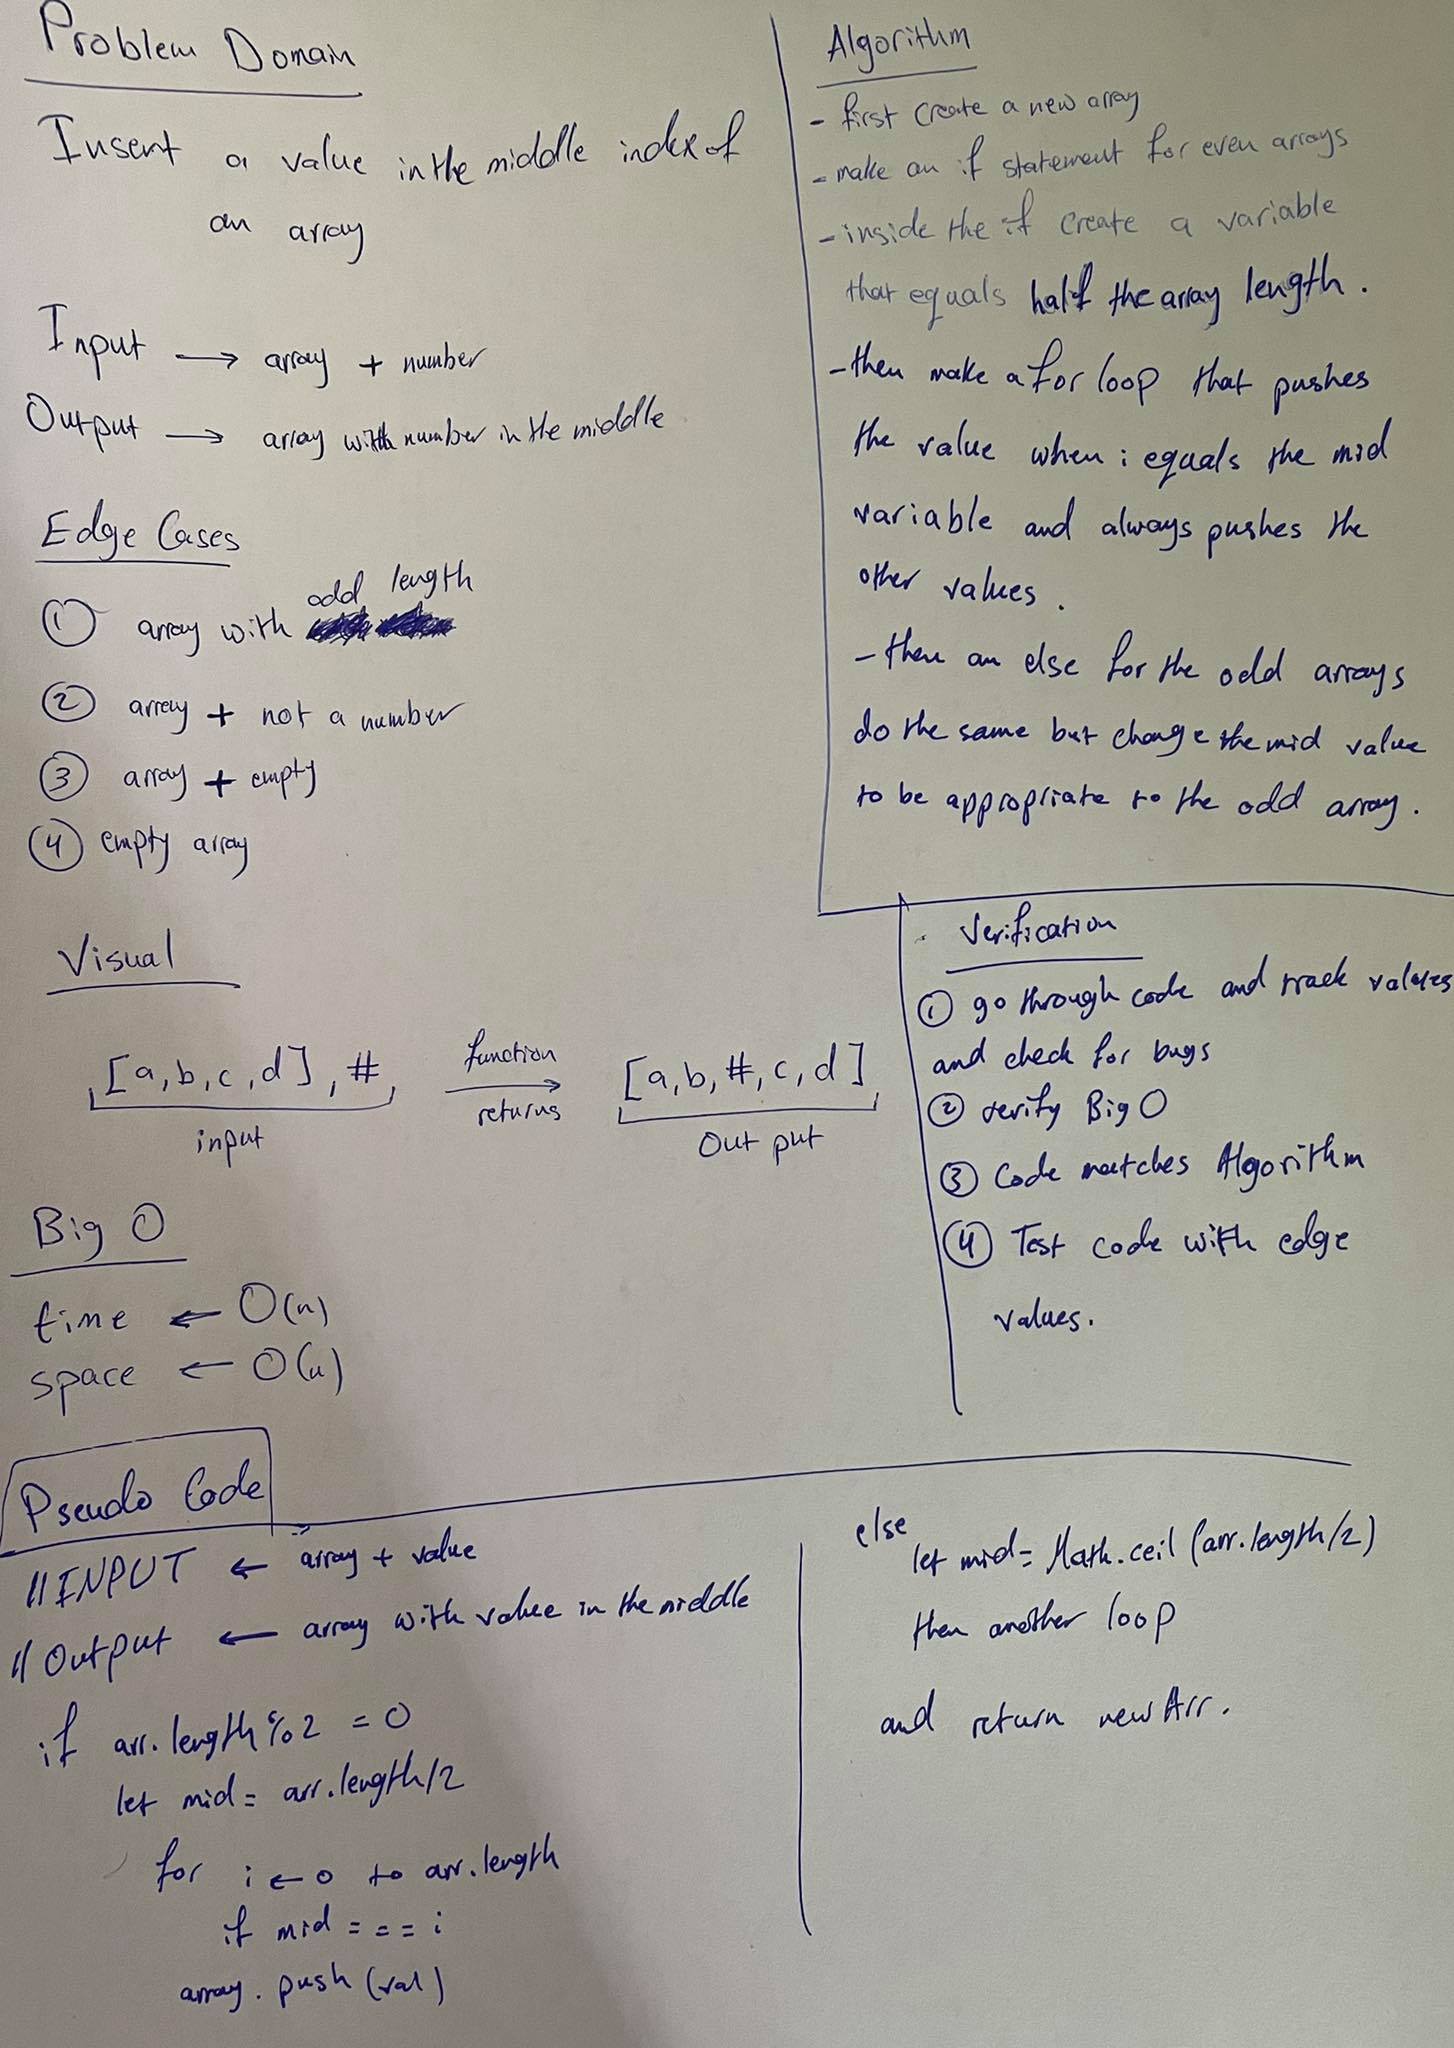 Problem Domain
Insert a value in the middle index of
an array
Input → array + number
Output → array with number in the middle
Edge Cases
① array with odd length
② array + not a number
③ array + empty
④ empty array
Visual
[a, b, c, d], #
input
function
returns
[a, b, #, c, d]
Out put
Big O
time ← O(n)
space ← O(n)
Algorithm
- first create a new array
- make an if statement for even arrays
- inside the if create a variable
that equals half the array length.
- then make a for loop that pushes
the value when i equals the mid
variable and always pushes the
other values.
- then an else for the odd arrays
do the same but change the mid value
to be appropriate to the odd array.
Verification
① go through code and track values
and check for bugs
② verify Big O
③ Code matches Algorithm
④ Test code with edge
values.
Pseudo Code
// INPUT ← array + value
// Output ← array with value in the middle
if arr.length % 2 = 0
let mid = arr.length/2
for i ← 0 to arr.length
if mid === i
array.push(val)
else
let mid = Math.ceil (arr.length/2)
then another loop
and return newArr.